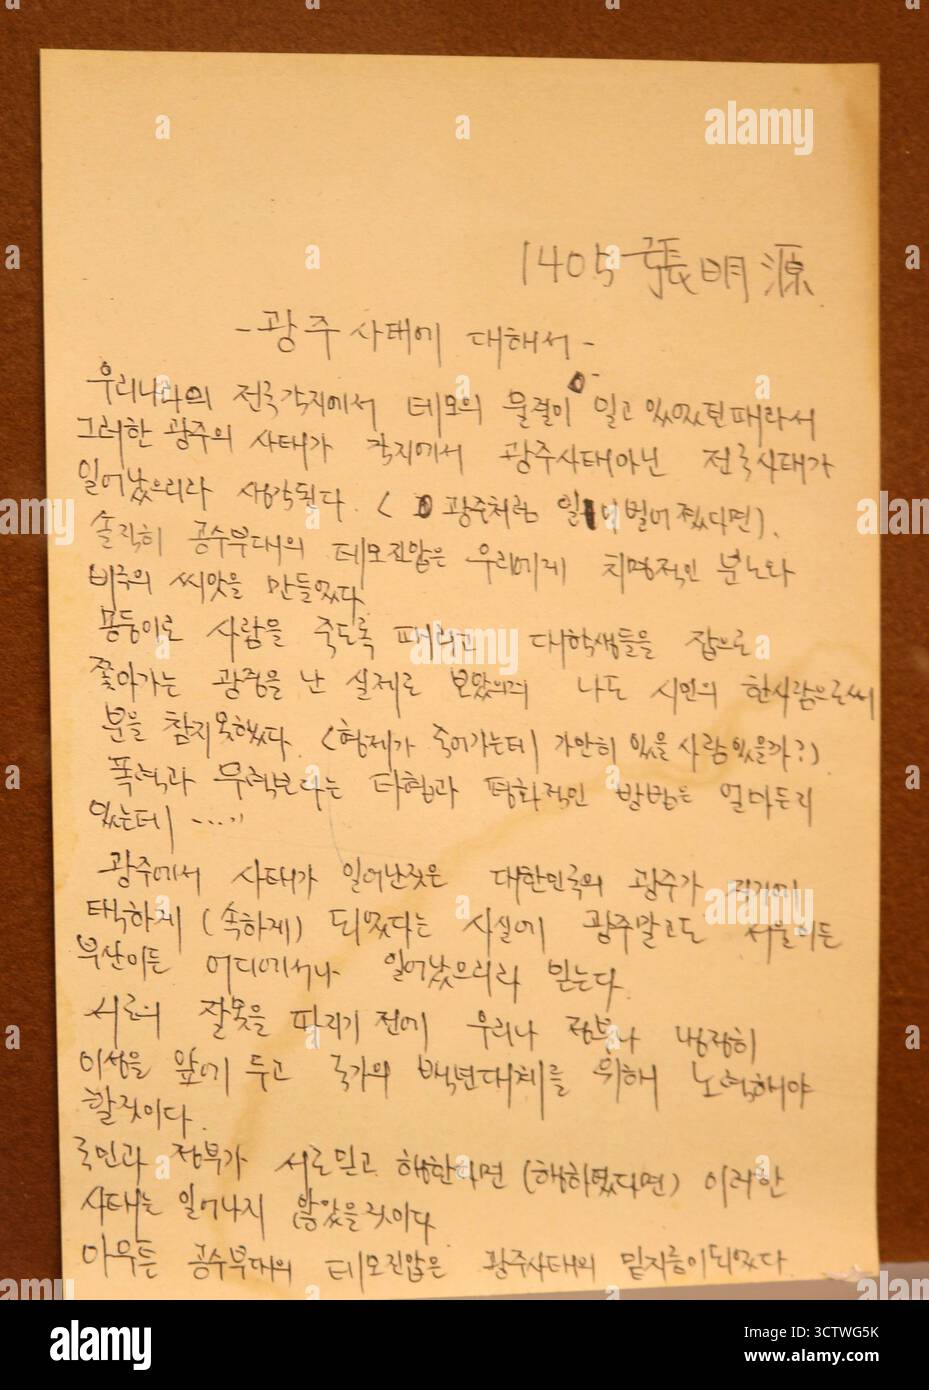 1405 張明源
- 광주 사태에 대해서 -
우리나라의 전국각지에서 데모의 물결이 일고 있었던때라서
그러한 광주의 사태가 각지에서 광주사태아닌 전국사태가
일어났으리라 생각된다. ( 광주처럼 벌어졌다면).
솔직히 공수부대의 데모진압은 우리에게 치명적인 분노와
비극의 씨앗을 만들었다
몽둥이로 사람을 죽도록 때리고 대학생들을 잡으로
쫓아가는 광경을 난 실제로 보았으며 나도 시민의 한사람으로써
분을 참지못했다. (형제가 죽어가는데 가만히 있을 사람있을까?)
폭력과 무력보다는 타협과 평화적인 방법은 얼마든지
있는데 .....
광주에서 사태가 일어난것은 대한민국의 광주가 거기에
택하게 (속하게) 되었다는 사실에 광주말고도 서울이든
부산이든 어디에서나 일어났으리라 믿는다
서로의 잘못을 따지기 전에 우리나 정부나 냉정히
이성을 앞에 두고 국가의 백년대계를 위하여 노력해야
할것이다.
국민과 정부가 서로믿고 행한다면 (행하였다면) 이러한
사태는 일어나지 않았을것이다
아무튼 공수부대의 데모진압은 광주사태의 밑거름이되었다
alamy
Image ID: 3CTWG5K
www.alamy.com